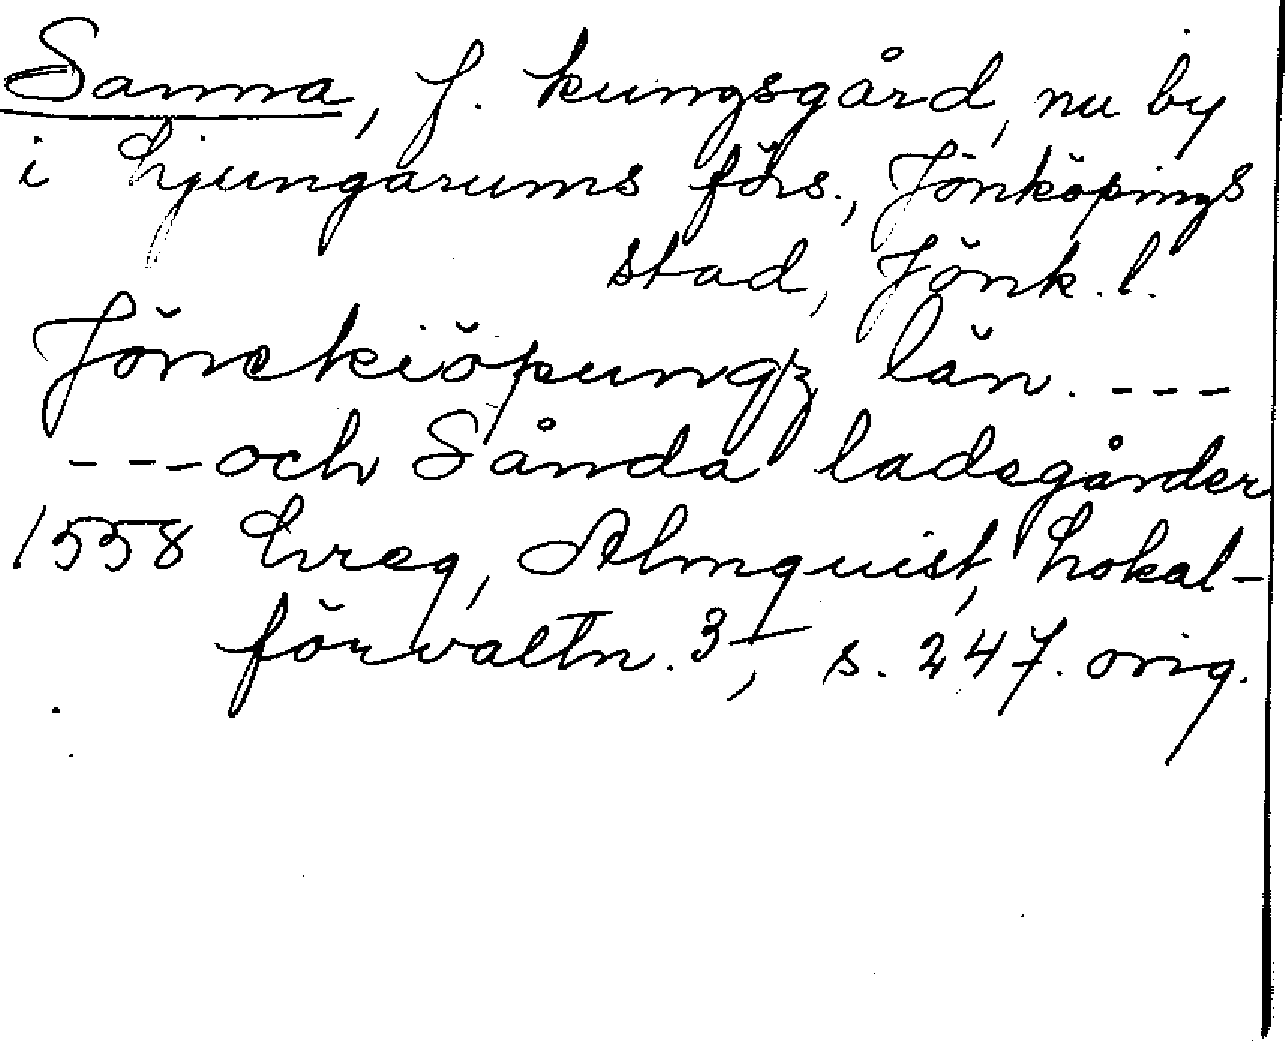 Sanna, f. kungsgård, nu by
i Ljungarums förs., Jönköpings
stad, Jönk. l.
Jönckiöpungz län. ---
--- och Sånda ladegårder
1558 Lreg, Almquist, Lokal-
förvaltn. 3, s. 247. orig.